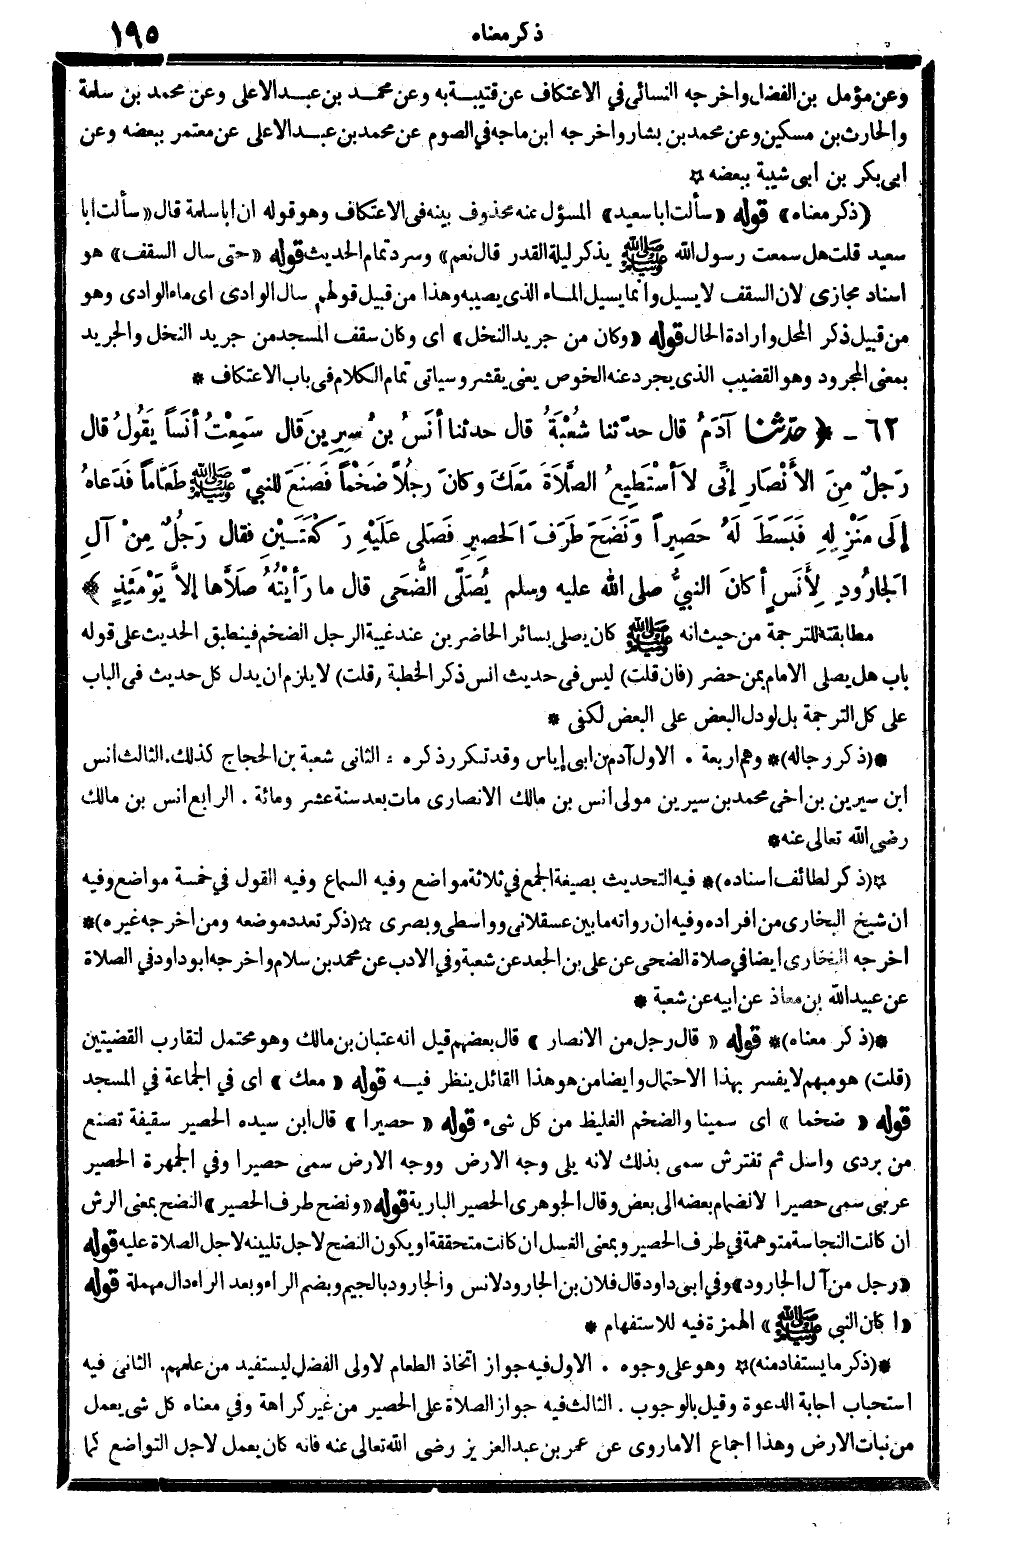 ذكر معناه
١٩٥
وعن مؤمل بن الفضل واخرجه النسائى في الاعتكاف عن قتيبة به وعن محمد بن عبد الاعلى وعن محمد بن سلمة
والحارث بن مسكين وعن محمد بن بشار واخرجه ابن ماجه في الصوم عن محمد بن عبد الاعلى عن معتمر ببعضه وعن
ابى بكر بن ابى شيبة ببعضه ✩
(ذكر معناه) قوله «سألت ابا سعيد» المسؤل عنه محذوف بينه فى الاعتكاف وهو قوله ان ابا سلمة قال «سألت ابا
سعيد قلت هل سمعت رسول الله ﷺ يذكر ليلة القدر قال نعم» وسرد تمام الحديث قوله «حتى سال السقف» هو
اسناد مجازى لان السقف لا يسيل وانما يسيل الماء الذى يصيبه وهذا من قبيل قولهم سال الوادى اى ماء الوادى وهو
من قبيل ذكر المحل وارادة الحال قوله «وكان من جريد النخل» اى وكان سقف المسجد من جريد النخل والجريد
بمعنى المجرود وهو القضيب الذى يجرد عنه الخوص يعنى يقشر وسياتى تمام الكلام فى باب الاعتكاف *
٦٢ - ﴿ حدّثنا آدَمُ قال حدّثنا شُعْبَةُ قال حدثنا أنَسُ بنُ سِيرِينَ قال سَمِعْتُ أنَساً يَقُولُ قال
رَجلٌ مِنَ الأَنْصَارِ إنِّى لاَ أسْتَطِيعُ الصَّلاَةَ مَعَكَ وكانَ رجُلاً ضَخْماً فَصَنَعَ للنبيّ ﷺ طَعَاماً فَدَعاهُ
إلَى مَنْزِلِهِ فَبَسَطَ لَهُ حَصِيراً وَنَضَحَ طَرَفَ الحَصِيرِ فَصَلى عَلَيْهِ رَكْعَتَيْنِ فقال رَجُلٌ مِنْ آلِ
الجارُودِ لِأَنَسٍ أكانَ النبيُّ صلى الله عليه وسلم يُصَلّى الضُّحَى قال ما رَأيْتُهُ صَلاَّها إلاَّ يَوْمَئِذٍ ﴾
مطابقته للترجمة من حيث انه ﷺ كان يصلى بسائر الحاضرين عند غيبة الرجل الضخم فينطبق الحديث على قوله
باب هل يصلى الامام بمن حضر (فان قلت) ليس فى حديث انس ذكر الخطبة (قلت) لا يلزم ان يدل كل حديث فى الباب
على كل الترجمة بل لو دل البعض على البعض لكفى *
*(ذكر رجاله)* وهم اربعة . الاول آدم بن ابى إياس وقد تكرر ذكره : الثانى شعبة بن الحجاج كذلك. الثالث انس
ابن سيرين بن اخى محمد بن سيرين مولى انس بن مالك الانصارى مات بعد سنة عشر ومائة . الرابع انس بن مالك
رضى الله تعالى عنه*
✩(ذكر لطائف اسناده)* فيه التحديث بصيغة الجمع في ثلاثة مواضع وفيه السماع وفيه القول في خمسة مواضع وفيه
ان شيخ البخارى من افراده وفيه ان رواته ما بين عسقلانى وواسطى وبصرى ✩(ذكر تعدد موضعه ومن اخرجه غيره)*
اخرجه البخارى ايضا في صلاة الضحى عن على بن الجعد عن شعبة وفي الادب عن محمد بن سلام واخرجه ابو داود في الصلاة
عن عبيد الله بن معاذ عن ابيه عن شعبة *
*(ذكر معناه)* قوله « قال رجل من الانصار » قال بعضهم قيل انه عتبان بن مالك وهو محتمل لتقارب القضيتين
(قلت) هو مبهم لا يفسر بهذا الاحتمال وايضا من هو هذا القائل ينظر فيه قوله « معك » اى في الجماعة في المسجد
قوله « ضخما » اى سمينا والضخم الغليظ من كل شىء قوله « حصيرا » قال ابن سيده الحصير سقيفة تصنع
من بردى واسل ثم تفترش سمى بذلك لانه يلى وجه الارض ووجه الارض سمى حصيرا وفي الجمهرة الحصير
عربى سمى حصيرا لانضمام بعضه الى بعض وقال الجوهرى الحصير البارية قوله «ونضح طرف الحصير» النضح بمعنى الرش
ان كانت النجاسة متوهمة في طرف الحصير وبمعنى الغسل ان كانت متحققة او يكون النضح لاجل تليينه لاجل الصلاة عليه قوله
«رجل من آل الجارود» وفي ابى داود قال فلان بن الجارود لانس والجارود بالجيم وبضم الراء وبعد الراء دال مهملة قوله
«ا كان النبى ﷺ» الهمزة فيه للاستفهام *
*(ذكر ما يستفاد منه)✩ وهو على وجوه . الاول فيه جواز اتخاذ الطعام لاولى الفضل ليستفيد من علمهم. الثانى فيه
استحباب اجابة الدعوة وقيل بالوجوب . الثالث فيه جواز الصلاة على الحصير من غير كراهة وفي معناه كل شى يعمل
من نبات الارض وهذا اجماع الا ما روى عن عمر بن عبد العزيز رضى الله تعالى عنه فانه كان يعمل لاجل التواضع كما